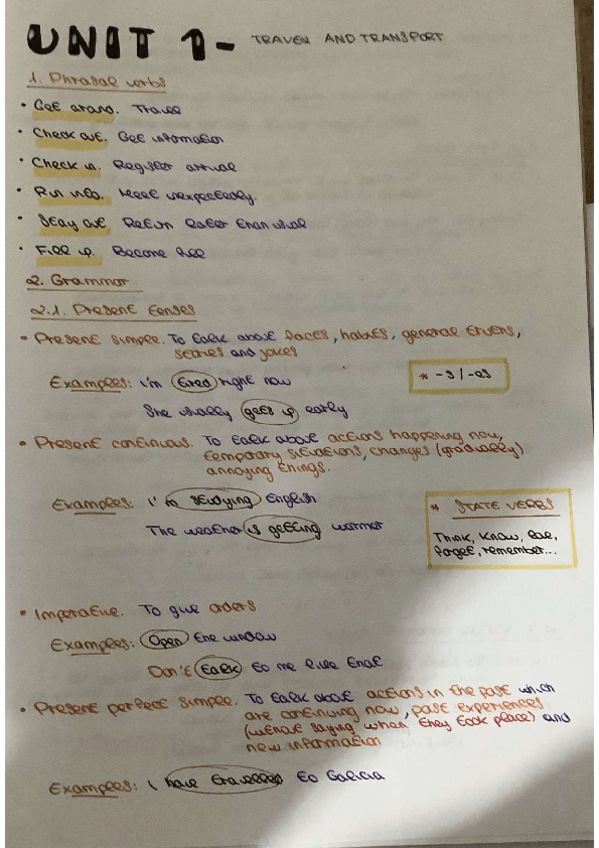 UNIT 1- TRAVEL AND TRANSPORT
1. Phrasal verbs
• Get around. Travel
• Check out. Get information
• Check in. Register arrival
• Run into. Meet unexpectedly.
• Stay out. Return later than usual
• Fill up. Become full
2. Grammar
2.1. Present tenses
• Present simple. To talk about facts, habits, general truths,
states and jokes
Examples: I'm tired right now
* -s / -es
She usually gets up early
• Present continuous. To talk about actions happening now,
temporary situations, changes (gradually)
annoying things.
Examples: I'm studying English
The weather is getting warmer
* STATE VERBS
Think, know, love,
forget, remember...
• Imperative. To give orders
Examples: Open the window
Don't talk to me like that
• Present perfect simple. To talk about actions in the past which
are continuing now, past experiences
(without saying when they took place) and
new information
Examples: I have travelled to Galicia